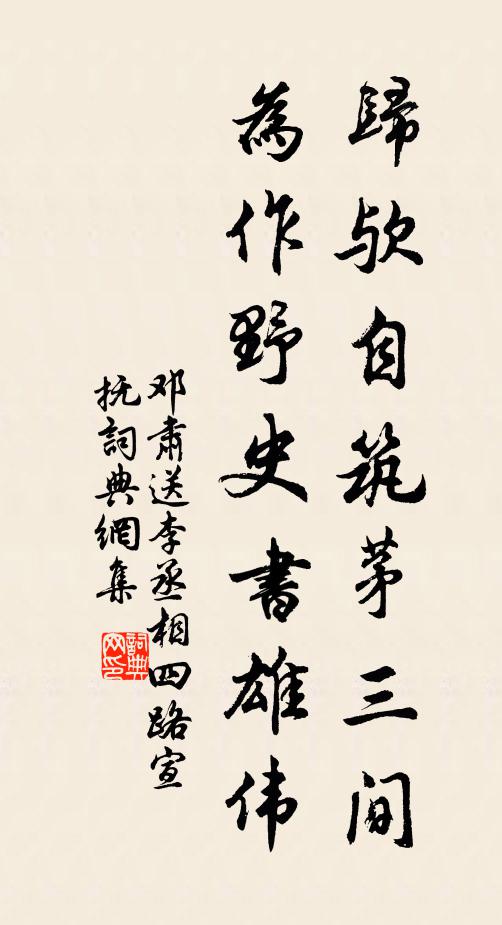 歸欤自筑茅三间
為作野史書雄伟
邓肃送李丞相四路宣
抚詞典網集
詞典網印